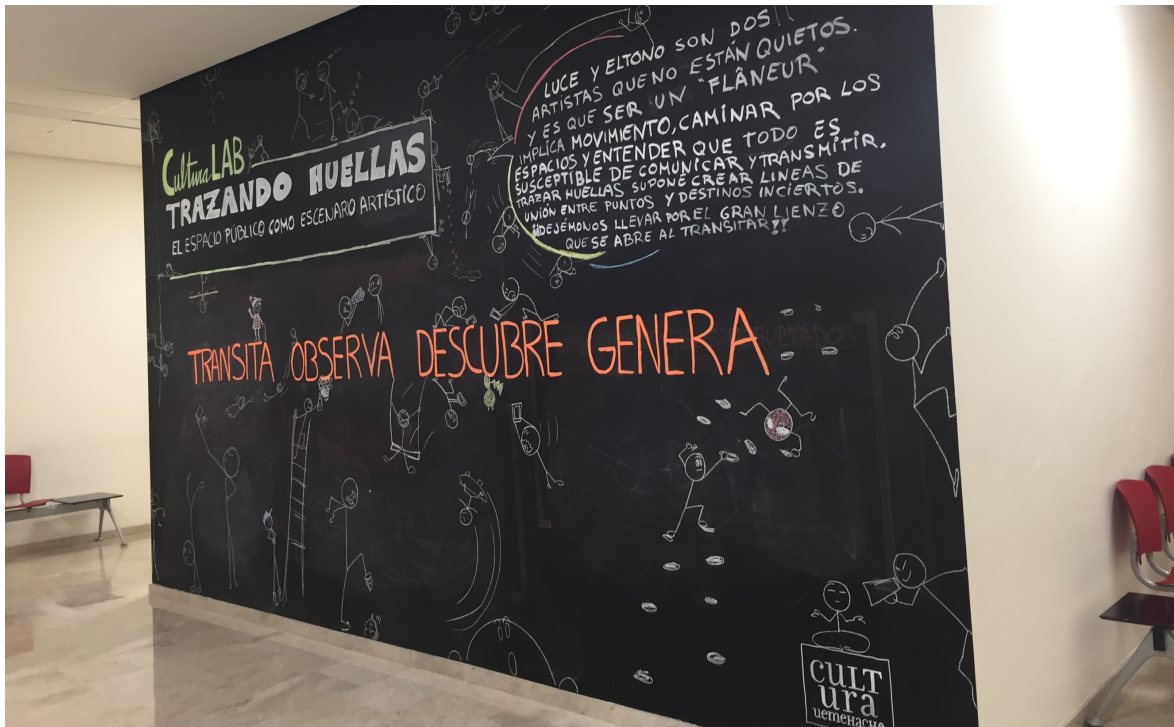 Cultura LAB
TRAZANDO HUELLAS
EL ESPACIO PÚBLICO COMO ESCENARO ARTÍSTICO
LUCE Y ELTONO SON DOS
ARTISTAS QUE NO ESTÁN QUIETOS.
Y ES QUE SER UN "FLÂNEUR"
IMPLICA MOVIMIENTO, CAMINAR POR LOS
ESPACIOS Y ENTENDER QUE TODO ES
SUSCEPTIBLE DE COMUNICAR Y TRANSMITIR.
TRAZAR HUELLAS SUPONE CREAR LINEAS DE
UNIÓN ENTRE PUNTOS Y DESTINOS INCIERTOS.
¡¡DEJÉMONOS LLEVAR POR EL GRAN LIENZO
QUE SE ABRE AL TRANSITAR!!
TRANSITA OBSERVA DESCUBRE GENERA
CULT
URA
UEMEHACHE